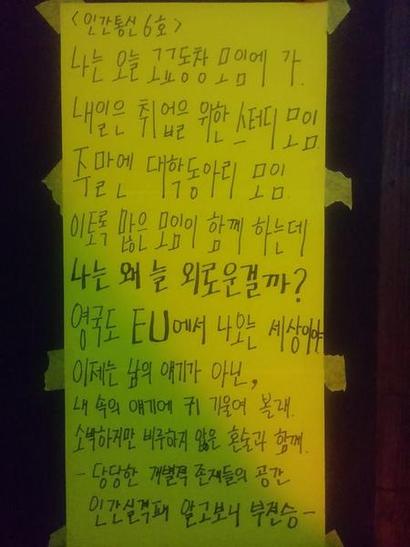 <인간통신 6호>
나는 오늘 고교동창 모임에 가.
내일은 취업을 위한 스터디 모임.
주말엔 대학동아리 모임.
이토록 많은 모임이 함께 하는데
나는 왜 늘 외로운걸까?
영국도 EU에서 나오는 세상이야
이제는 남의 얘기가 아닌,
내 속의 얘기에 귀 기울여 볼래.
소박하지만 비루하지 않은 혼술과 함께.
- 당당한 개별적 존재들의 공간
인간실격패 알고보니 부전승 -